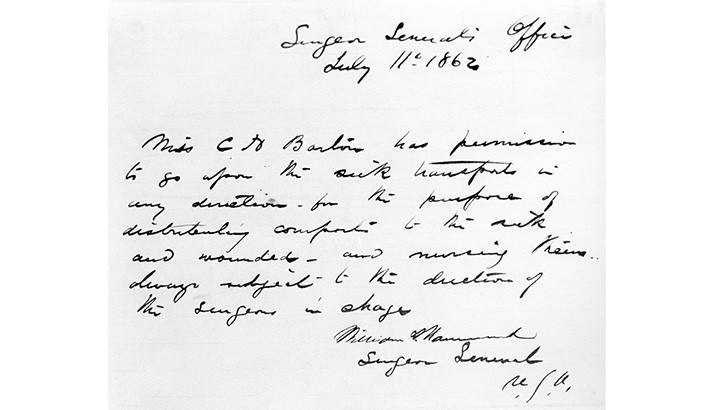 Surgeon General's Office
July 11th 1862
Miss C H Barton has permission
to go upon the sick transports in
any direction - for the purpose of
distributing comforts to the sick
and wounded - and nursing them -
always subject to the direction of
the surgeon in charge
William A. Hammond
Surgeon General
U.S.A.